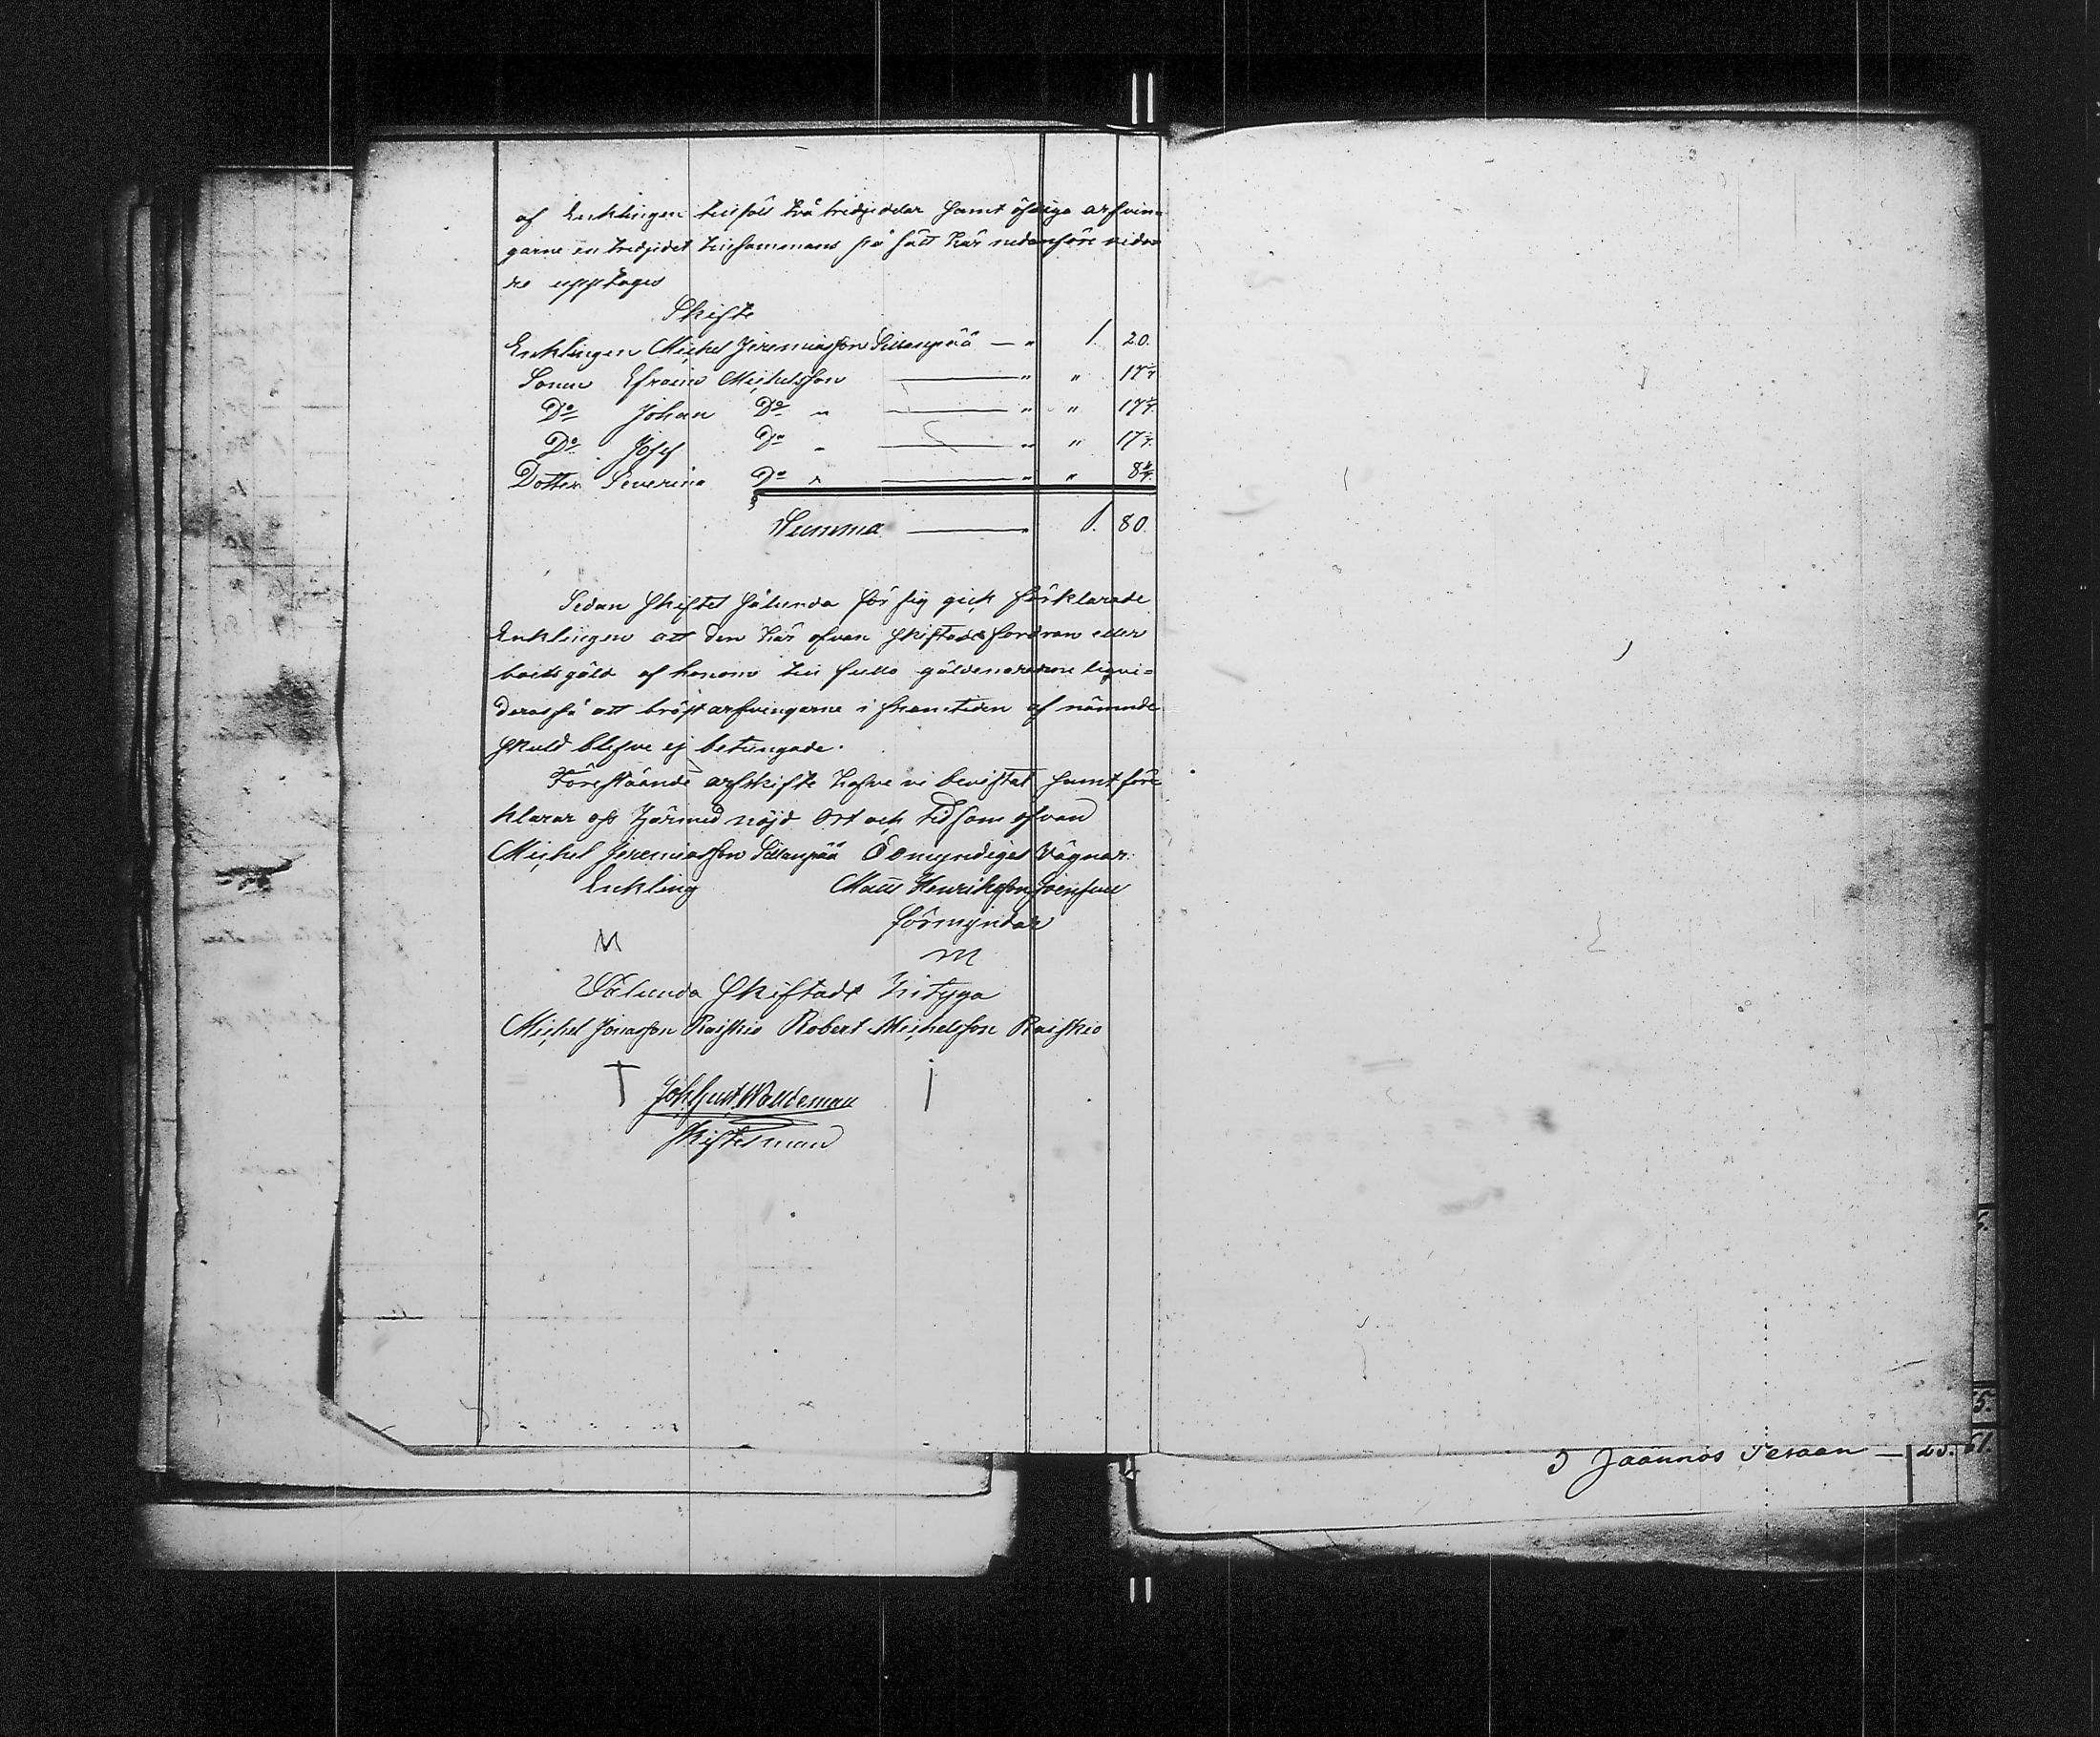 af Enklingen tillföll två tredjedelar samt öfriga arfvin-
garne en tredjedel tillsammans på sätt här nedanföre vida-
re upptages
Skifte
Enklingen Michel Jeremiasson Sillanpää — " 1. 20.
Sonen Efraim Michelsson — " " 17 1/7
Do Johan Do " — " " 17 1/7.
Do Josef Do " — " " 17 1/7.
Dotter Severina Do " — " " 8 4/7.
Summa — " 1. 80.
Sedan skiftet sålunda för sig gick förklarade
Enklingen att den här ofvan skiftade fordran eller
boets gäld af honom till fullo gäldenärerne liqvi-
deras så att bröstarfvingarne i framtiden af nämnde
skuld blefve ej betungade.
Förestående arfskifte hafve vi bevistat samt för-
klarar oss härmed nöjd Ort och tid som ofvan
Michel Jeremiasson Sillanpää Oomyndiges Vägnar:
Enkling Matts Henriksson
förmyndar
M
M
Sålunda skiftadt bityga
Michel Jonasson Raiskio Robert Michelsson Raiskio
Joh Gust Waldeman
skiftesman
Jaannos Peraan — 23. 61.